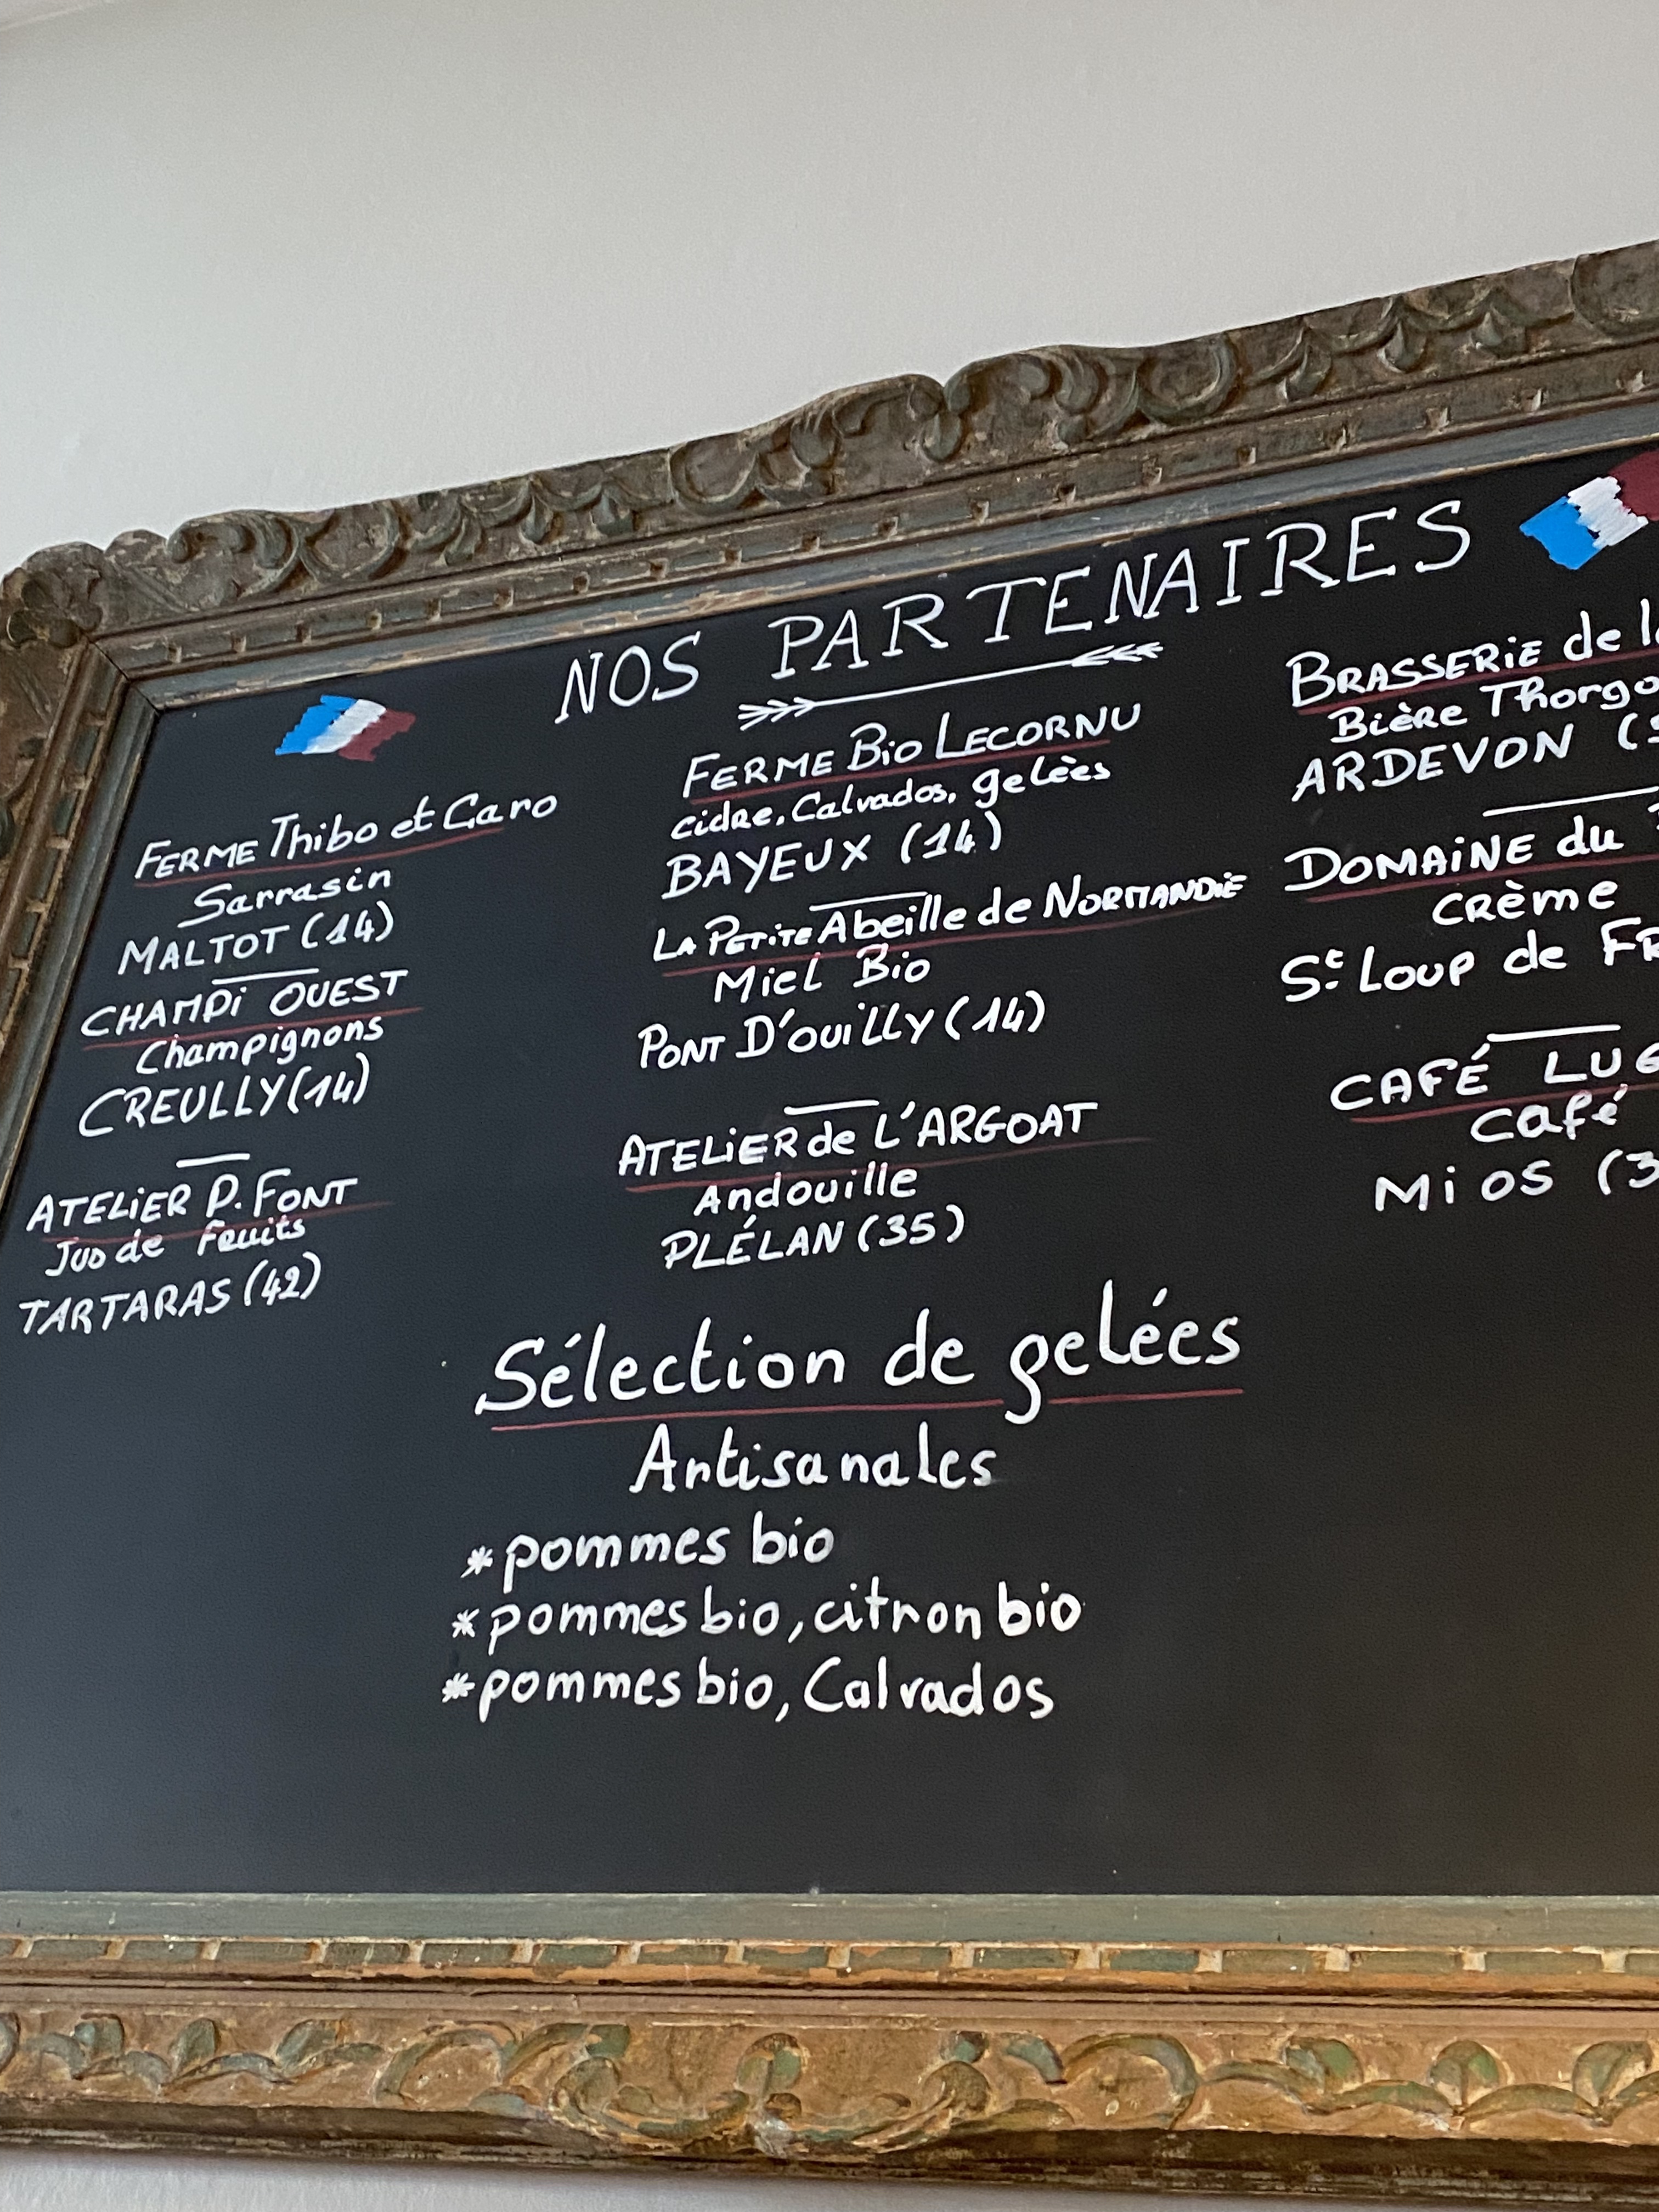 NOS PARTENAIRES
FERME Thibo et Caro
Sarrasin
MALTOT (14)
CHAMPI OUEST
Champignons
CREULLY (14)
ATELIER P. FONT
Jus de Fruits
TARTARAS (42)
FERME Bio LECORNU
cidre, Calvados, gelées
BAYEUX (14)
LA PETITE Abeille de NORMANDIE
Miel Bio
PONT D'OUILLY (14)
ATELIER de L'ARGOAT
Andouille
PLÉLAN (35)
BRASSERIE de
Bière
ARDEVON
DOMAINE du
CRème
St Loup de
CAFÉ
Café
MiOS
Sélection de gelées
Artisanales
*pommes bio
*pommes bio, citron bio
*pommes bio, Calvados